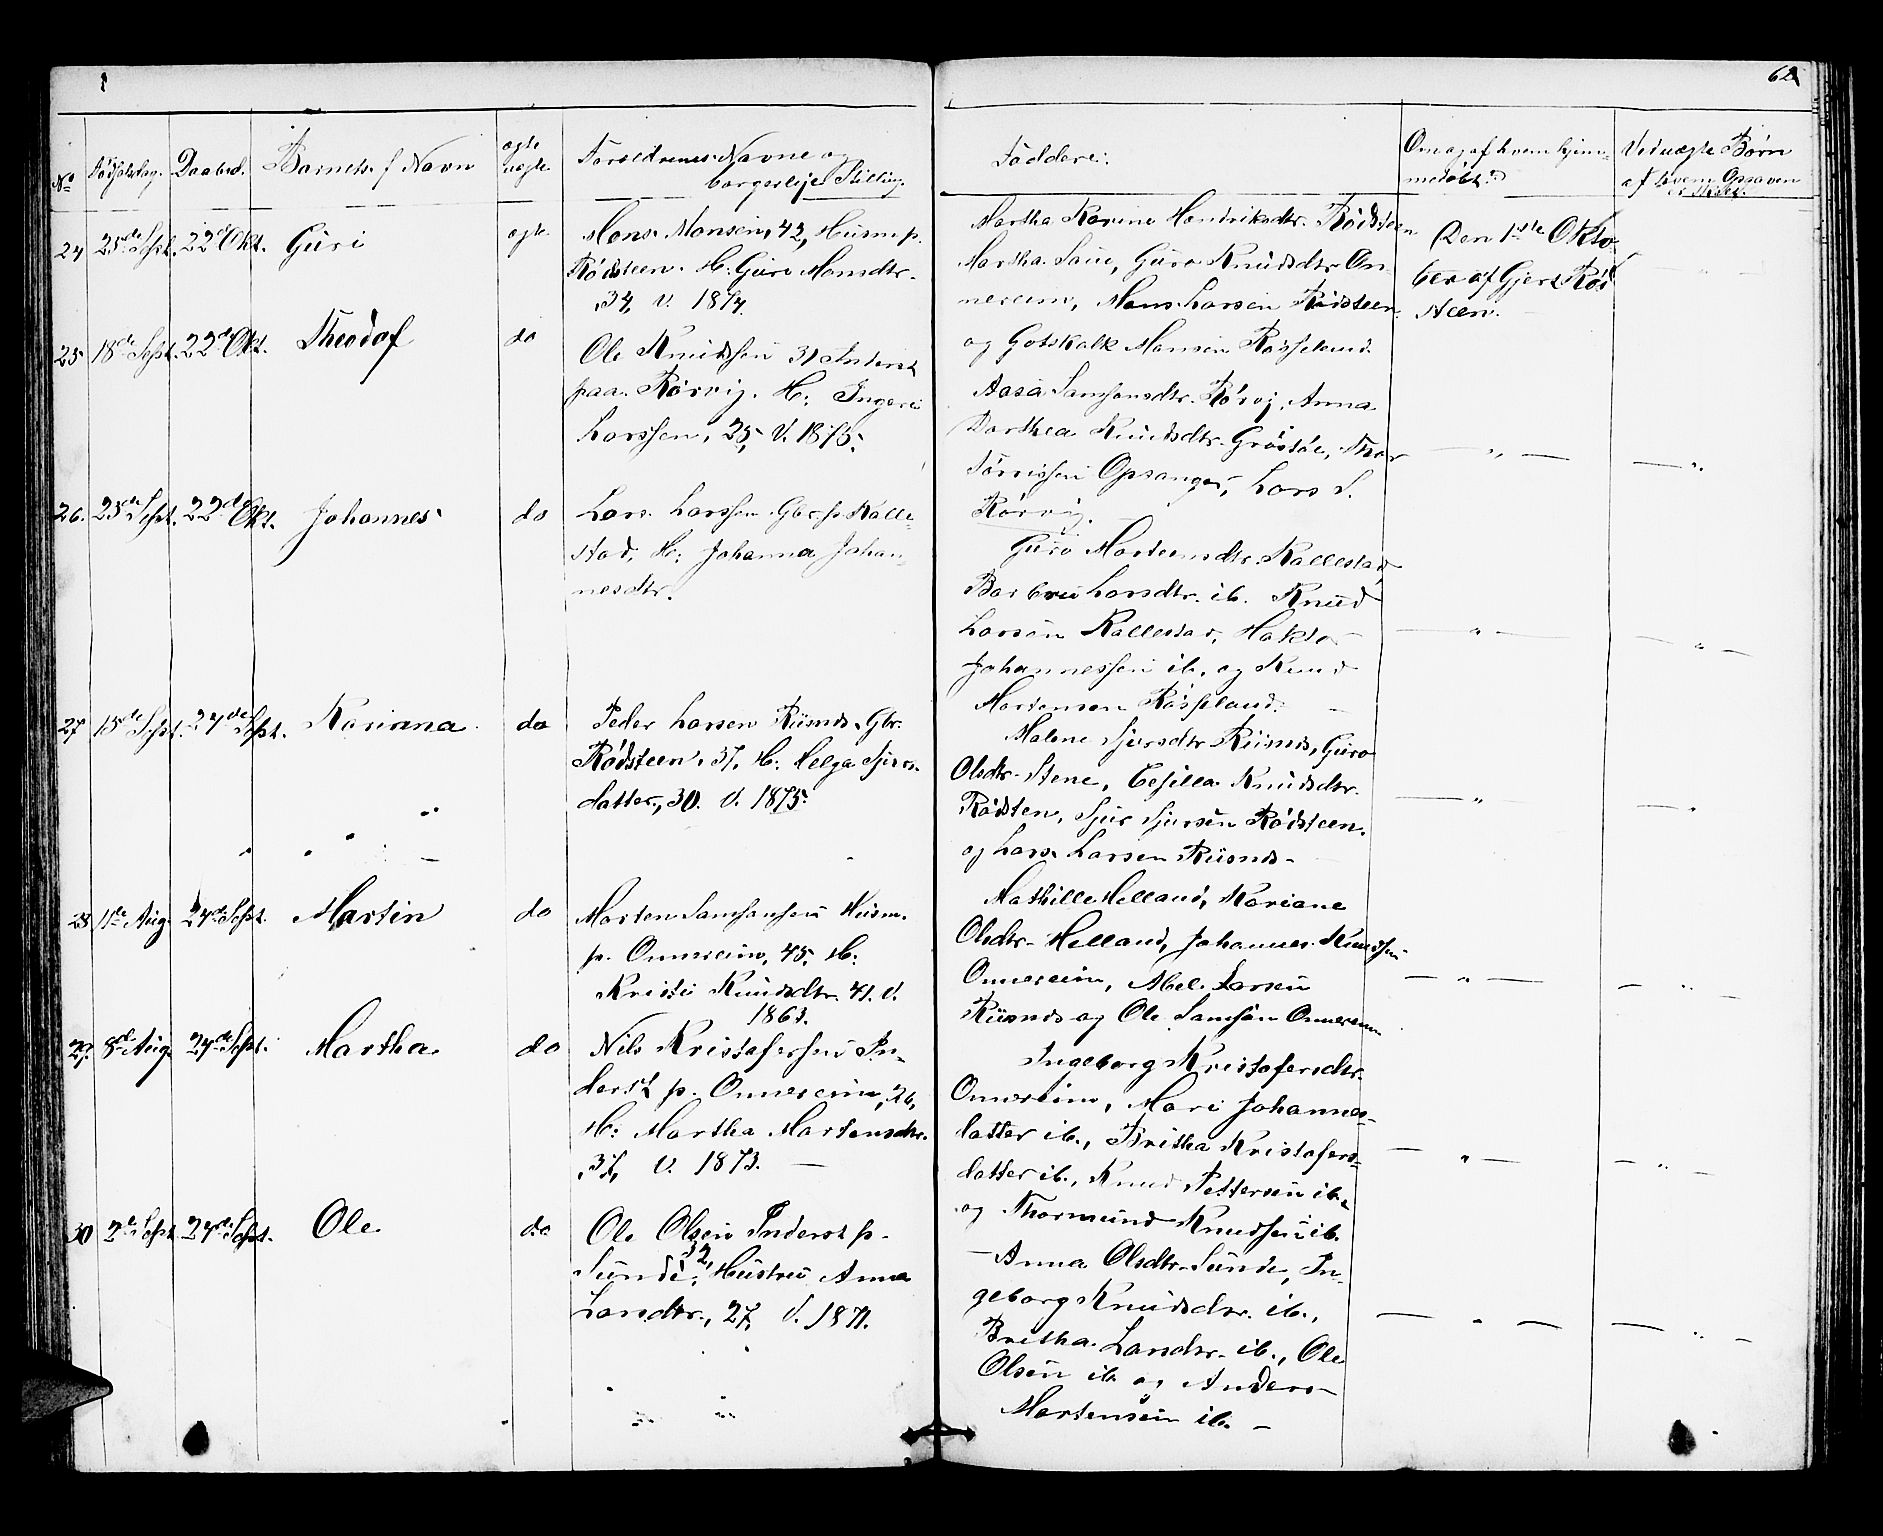 62
No Fødselsdag. Daabsd. Barnets f Navn ægte uægte. Forældrenes Navne og
borgerlige Stilling.
Faddere:
Om og af hvem hjem-
medøbt?
Ved uægte Børn
af hvem Opgaven
er Meddelt.
24 25de Sept. 22d Okt. Guri ægte.
Mons Monsen, 42, Husm p.
Rødsteen. H: Guri Monsdtr.
34, V. 1874.
Martha Karine Hendriksdtr. Rødsteen
Martha Saue, Guro Knudsdtr. On-
nereim, Mons Larsen Rødsteen
og Gotskalk Monsen Røsseland.
Den 1ste Okto-
ber af Gjert Rød-
steen.
25 18de Sept. 22d Okt. Theodof do
Ole Knudssen 31 Inderst
paa Rørvig. H: Ingeri
Larssen, 25, V. 1875.
Aasa Samsonsdtr. Rørvig, Anna
Dorthea Knudsdtr. Grøstøe, Thor
Tørrissen Opsanger, Lars S.
Rørvig.
— „ — — „
26. 25de Sept. 22d Okt. Johannes do
Lars Larssen Gbr. p Kalle-
stad, H: Johanna Johan-
nesdtr.
Guro Mortensdtr. Kallestad
Barbru Larsdtr. ib. Knud
Larsen Kallestad, Haktor
Johannessen ib. og Knud
Mortensen Røsseland.
— „ — — „ —
27 15de Sept. 24de Sept. Kariana do
Peder Larsen Riisnæs Gbr.
Rødsteen, 37, H: Helga Sjurs-
datter, 30. V. 1875.
Malene Sjursdtr Riisnæs, Guro
Olsdtr. Stene, Cesilla Knudsdtr.
Rødsten, Sjur Sjursen Rødsteen.
og Lars Larsen Riisnæs
— „ — „
28 11te Aug. 24de Sept. Martin do
Morten Samsonsen Husm.
p. Onnereim, 45, H:
Kristi Knudsdtr. 41. V.
1863.
Mathille Helland, Kariane
Olsdtr. Helland, Johannes Knudsen
Onnereim, Abel Larsen
Riisnæs og Ole Samson Onnereim
— „ — — „ —
29. 8de Aug. 24de Sept. Martha do
Nils Kristofersen In-
derst p. Onnereim, 26,
H: Martha Mortensdtr.
37, V. 1873. —
Ingeborg Kristofersdtr.
Onnereim, Mari Johannes-
datter ib., Britha Kristofers-
datter ib., Knud Pettersen ib.
og Thormund Knudsen ib.
— „ — — „ —
30 2de Sept. 24de Sept. Ole do
Ole Olsen Inderst p.
Sunde, 32, Hustru Anna
Larsdtr., 27, V. 1871.
— Anna Olsdtr. Sunde, In-
geborg Knudsdtr. ib.,
Britha Larsdtr. ib., Ole
Olsen ib og Anders
Mortensen ib. —
— „ — — „ —